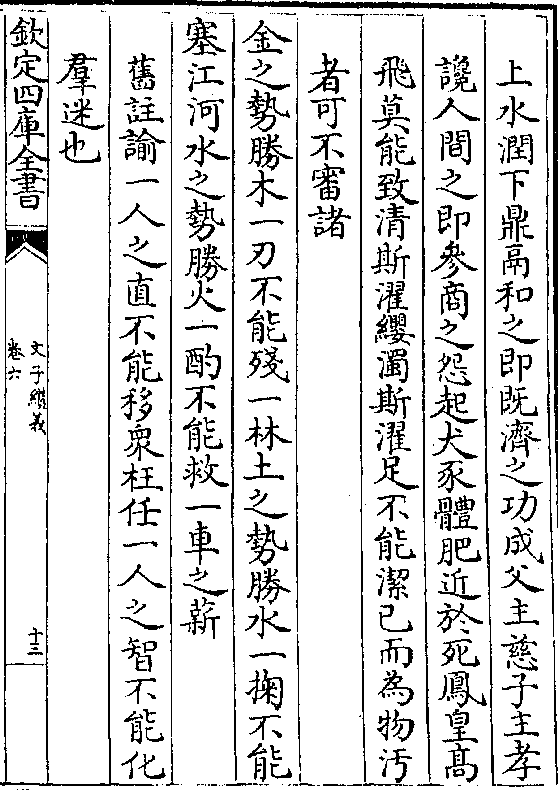 上水潤下鼎鬲和之即既濟之功成父主慈子主孝
讒人間之即參商之怨起犬豕體肥近於死鳳皇高
飛莫能致清斯濯纓濁斯濯足不能潔已而為物汚
者可不審諸
金之勢勝木一刃不能殘一林土之勢勝水一掬不能
塞江河水之勢勝火一酌不能救一車之薪
舊註諭一人之直不能移衆枉任一人之智不能化
羣迷也
欽定四庫全書
文子纘義
卷六
十三